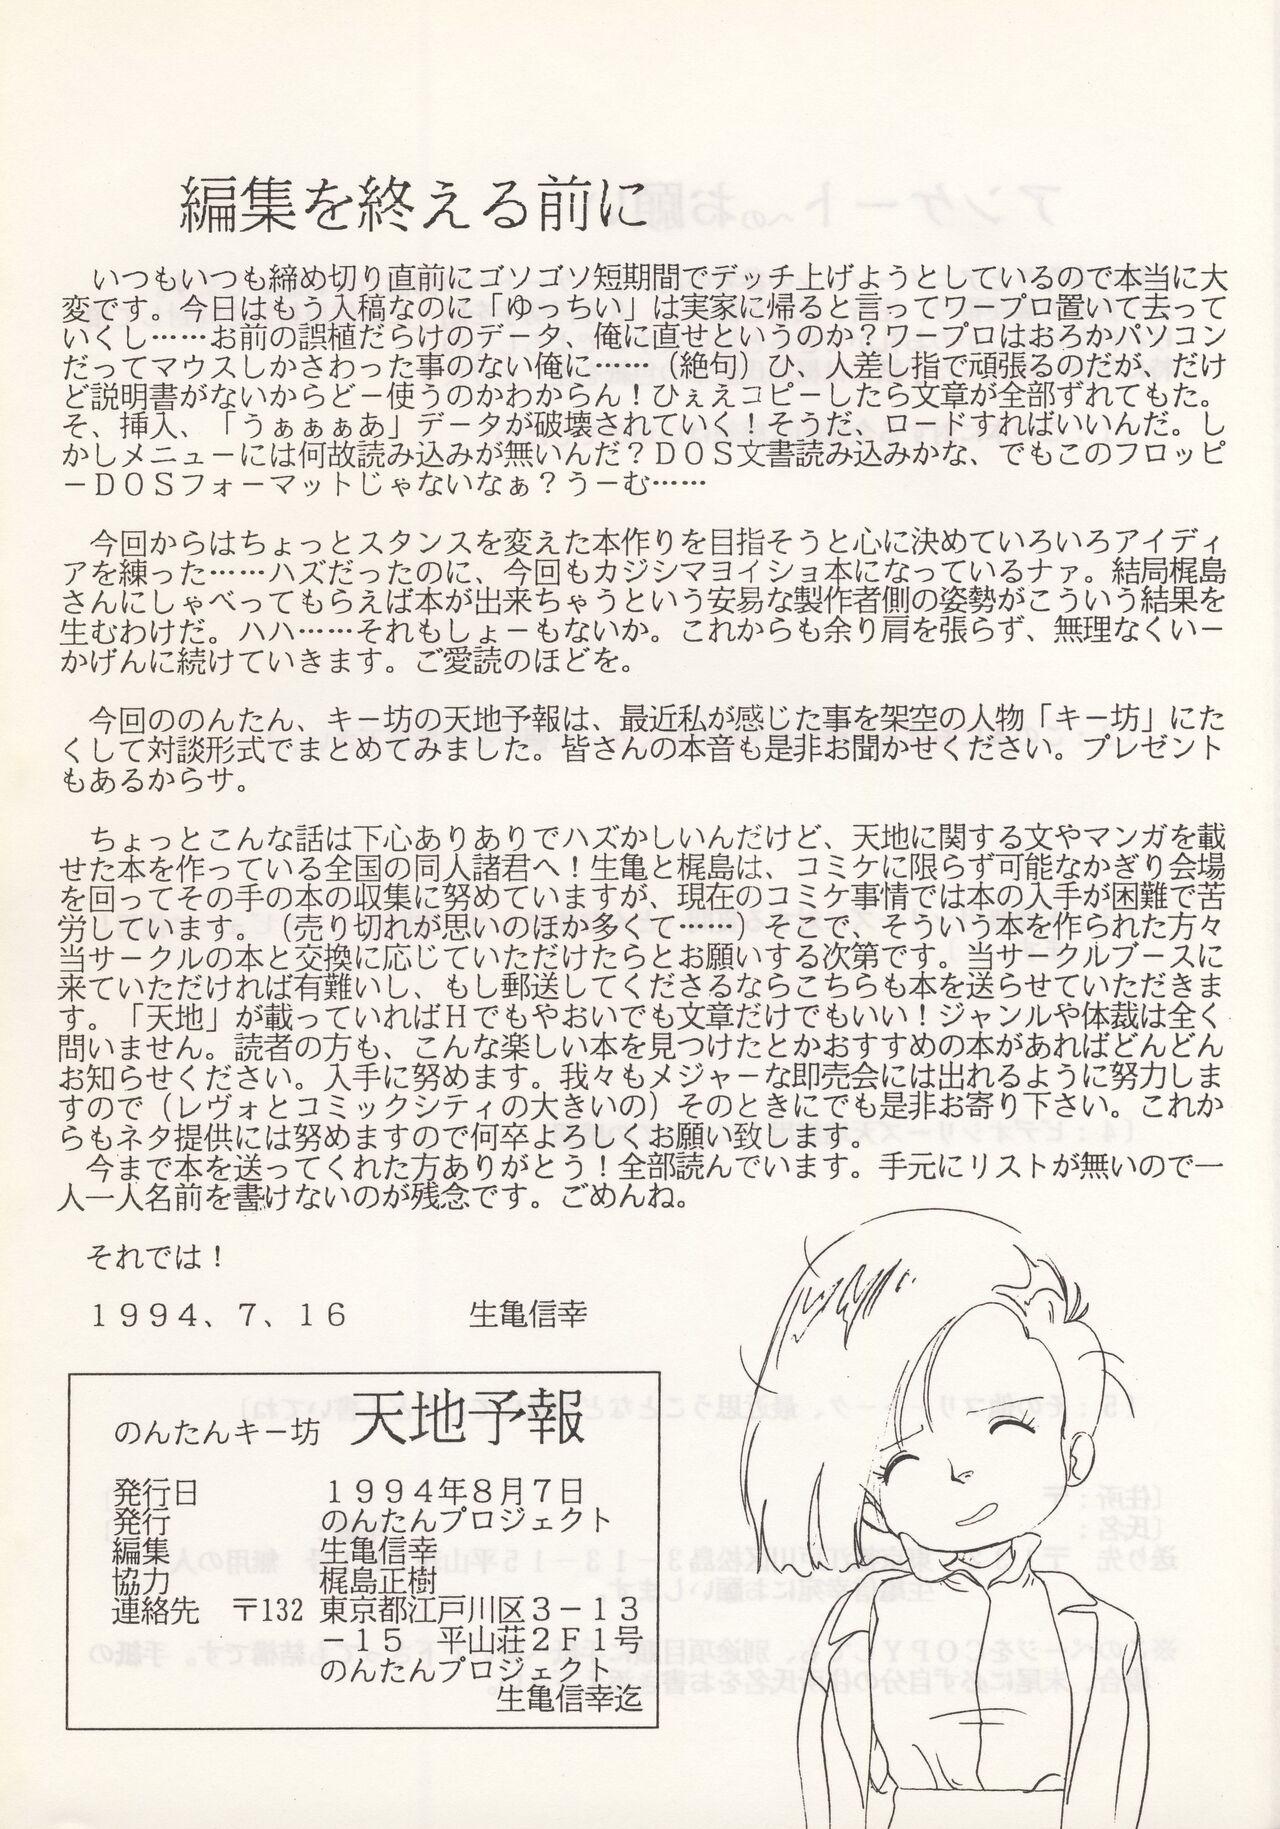 編集を終える前に
いつもいつも締め切り直前にゴソゴソ短期間でデッチ上げようとしているので本当に大
変です。今日はもう入稿なのに「ゆっちい」は実家に帰ると言ってワープロ置いて去って
いくし……お前の誤植だらけのデータ、俺に直せというのか？ワープロはおろかパソコン
だってマウスしかさわった事のない俺に……（絶句）ひ、人差し指で頑張るのだが、だけ
ど説明書がないからどー使うのかわからん！ひぇえコピーしたら文章が全部ずれてもた。
そ、挿入、「うぁぁぁあ」データが破壊されていく！そうだ、ロードすればいいんだ。し
かしメニューには何故読み込みが無いんだ？ＤＯＳ文書読み込みかな、でもこのフロッピ
ーＤＯＳフォーマットじゃないなぁ？うーむ……
今回からはちょっとスタンスを変えた本作りを目指そうと心に決めていろいろアイディ
アを練った……ハズだったのに、今回もカジシマヨイショ本になっているナァ。結局梶島
さんにしゃべってもらえば本が出来ちゃうという安易な製作者側の姿勢がこういう結果を
生むわけだ。ハハ……それもしょーもないか。これからも余り肩を張らず、無理なくいー
かげんに続けていきます。ご愛読のほどを。
今回ののんたん、キー坊の天地予報は、最近私が感じた事を架空の人物「キー坊」にた
くして対談形式でまとめてみました。皆さんの本音も是非お聞かせください。プレゼント
もあるからサ。
ちょっとこんな話は下心ありありでハズかしいんだけど、天地に関する文やマンガを載
せた本を作っている全国の同人諸君へ！生亀と梶島は、コミケに限らず可能なかぎり会場
を回ってその手の本の収集に努めていますが、現在のコミケ事情では本の入手が困難で苦
労しています。（売り切れが思いのほか多くて……）そこで、そういう本を作られた方々
当サークルの本と交換に応じていただけたらとお願いする次第です。当サークルブースに
来ていただければ有難いし、もし郵送してくださるならこちらも本を送らせていただきま
す。「天地」が載っていればＨでもやおいでも文章だけでもいい！ジャンルや体裁は全く
問いません。読者の方も、こんな楽しい本を見つけたとかおすすめの本があればどんどん
お知らせください。入手に努めます。我々もメジャーな即売会には出れるように努力しま
すので（レヴォとコミックシティの大きいの）そのときにでも是非お寄り下さい。これか
らもネタ提供には努めますので何卒よろしくお願い致します。
今まで本を送ってくれた方ありがとう！全部読んでいます。手元にリストが無いので一
人一人名前を書けないのが残念です。ごめんね。
それでは！
１９９４、７、１６　　　　生亀信幸
のんたんキー坊　天地予報
発行日　　　　１９９４年８月７日
発行　　　　　のんたんプロジェクト
編集　　　　　生亀信幸
協力　　　　　梶島正樹
連絡先　〒132 東京都江戸川区３－１３
－１５　平山荘２Ｆ１号
のんたんプロジェクト
生亀信幸迄